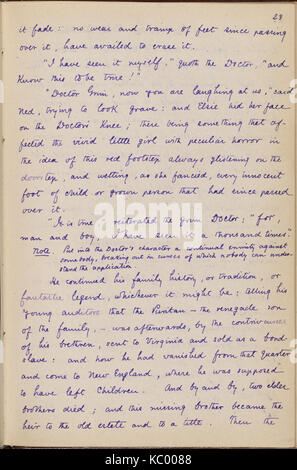 28
it fade: no wear and tramp of feet since passing
over it, have availed to erase it.
"I have seen it myself," quoth the Doctor, "and
know this to be true!"
"Doctor Grim, now you are laughing at us," said
Ned, trying to look grave: and Elsie hid her face
on the Doctor's knee; there being something that af-
fected the vivid little girl with peculiar horror in
the idea of this red footstep always glistening on the
doorstep, and wetting, as she fancied, every innocent
foot of child or grown person that had since passed
over it.
"It is true," reiterated the grim Doctor; "for,
man and boy, I have seen it a thousand times."
Note. Put into the Doctor's character a continual enmity against
somebody, breaking out in curses of which nobody can under-
stand the application
He continued his family history, or tradition, or
fantastic legend, whichever it might be; telling his
young auditors that the Puritan – the renegade son
of the family, – was afterwards, by the contrivances
of his brethren, sent to Virginia and sold as a bond-
slave: and now he had vanished from that quarter
and come to New England, where he was supposed
to have left children. And by and by, two elder
brothers died; and this missing brother became the
heir to the old estate and to a title. Then the
alamy
Image ID: KC0088
www.alamy.com